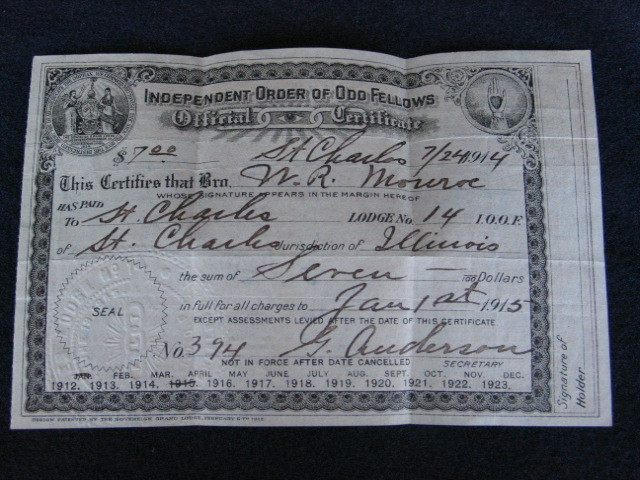 INDEPENDENT ORDER OF ODD FELLOWS
Official Certificate
$ 7.00 St Charles 7/24 1914
This Certifies that Bro. W. R. Monroe
WHOSE SIGNATURE APPEARS IN THE MARGIN HEREOF
HAS PAID
To St. Charles LODGE No. 14 I.O.O.F.
of St. Charles Jurisdiction of Illinois
the sum of Seven — Dollars
SEAL
in full for all charges to Jan 1st 1915
EXCEPT ASSESSMENTS LEVIED AFTER THE DATE OF THIS CERTIFICATE
No. 394 G. Anderson
NOT IN FORCE AFTER DATE CANCELLED SECRETARY
JAN. FEB. MAR. APRIL MAY JUNE JULY AUG. SEPT. OCT. NOV. DEC.
1912. 1913. 1914. 1915. 1916. 1917. 1918. 1919. 1920. 1921. 1922. 1923.
Signature of
Holder